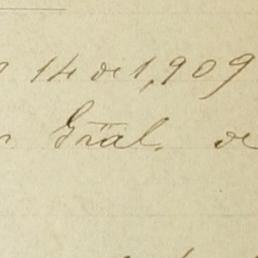 14 de 1,909
Gral. de